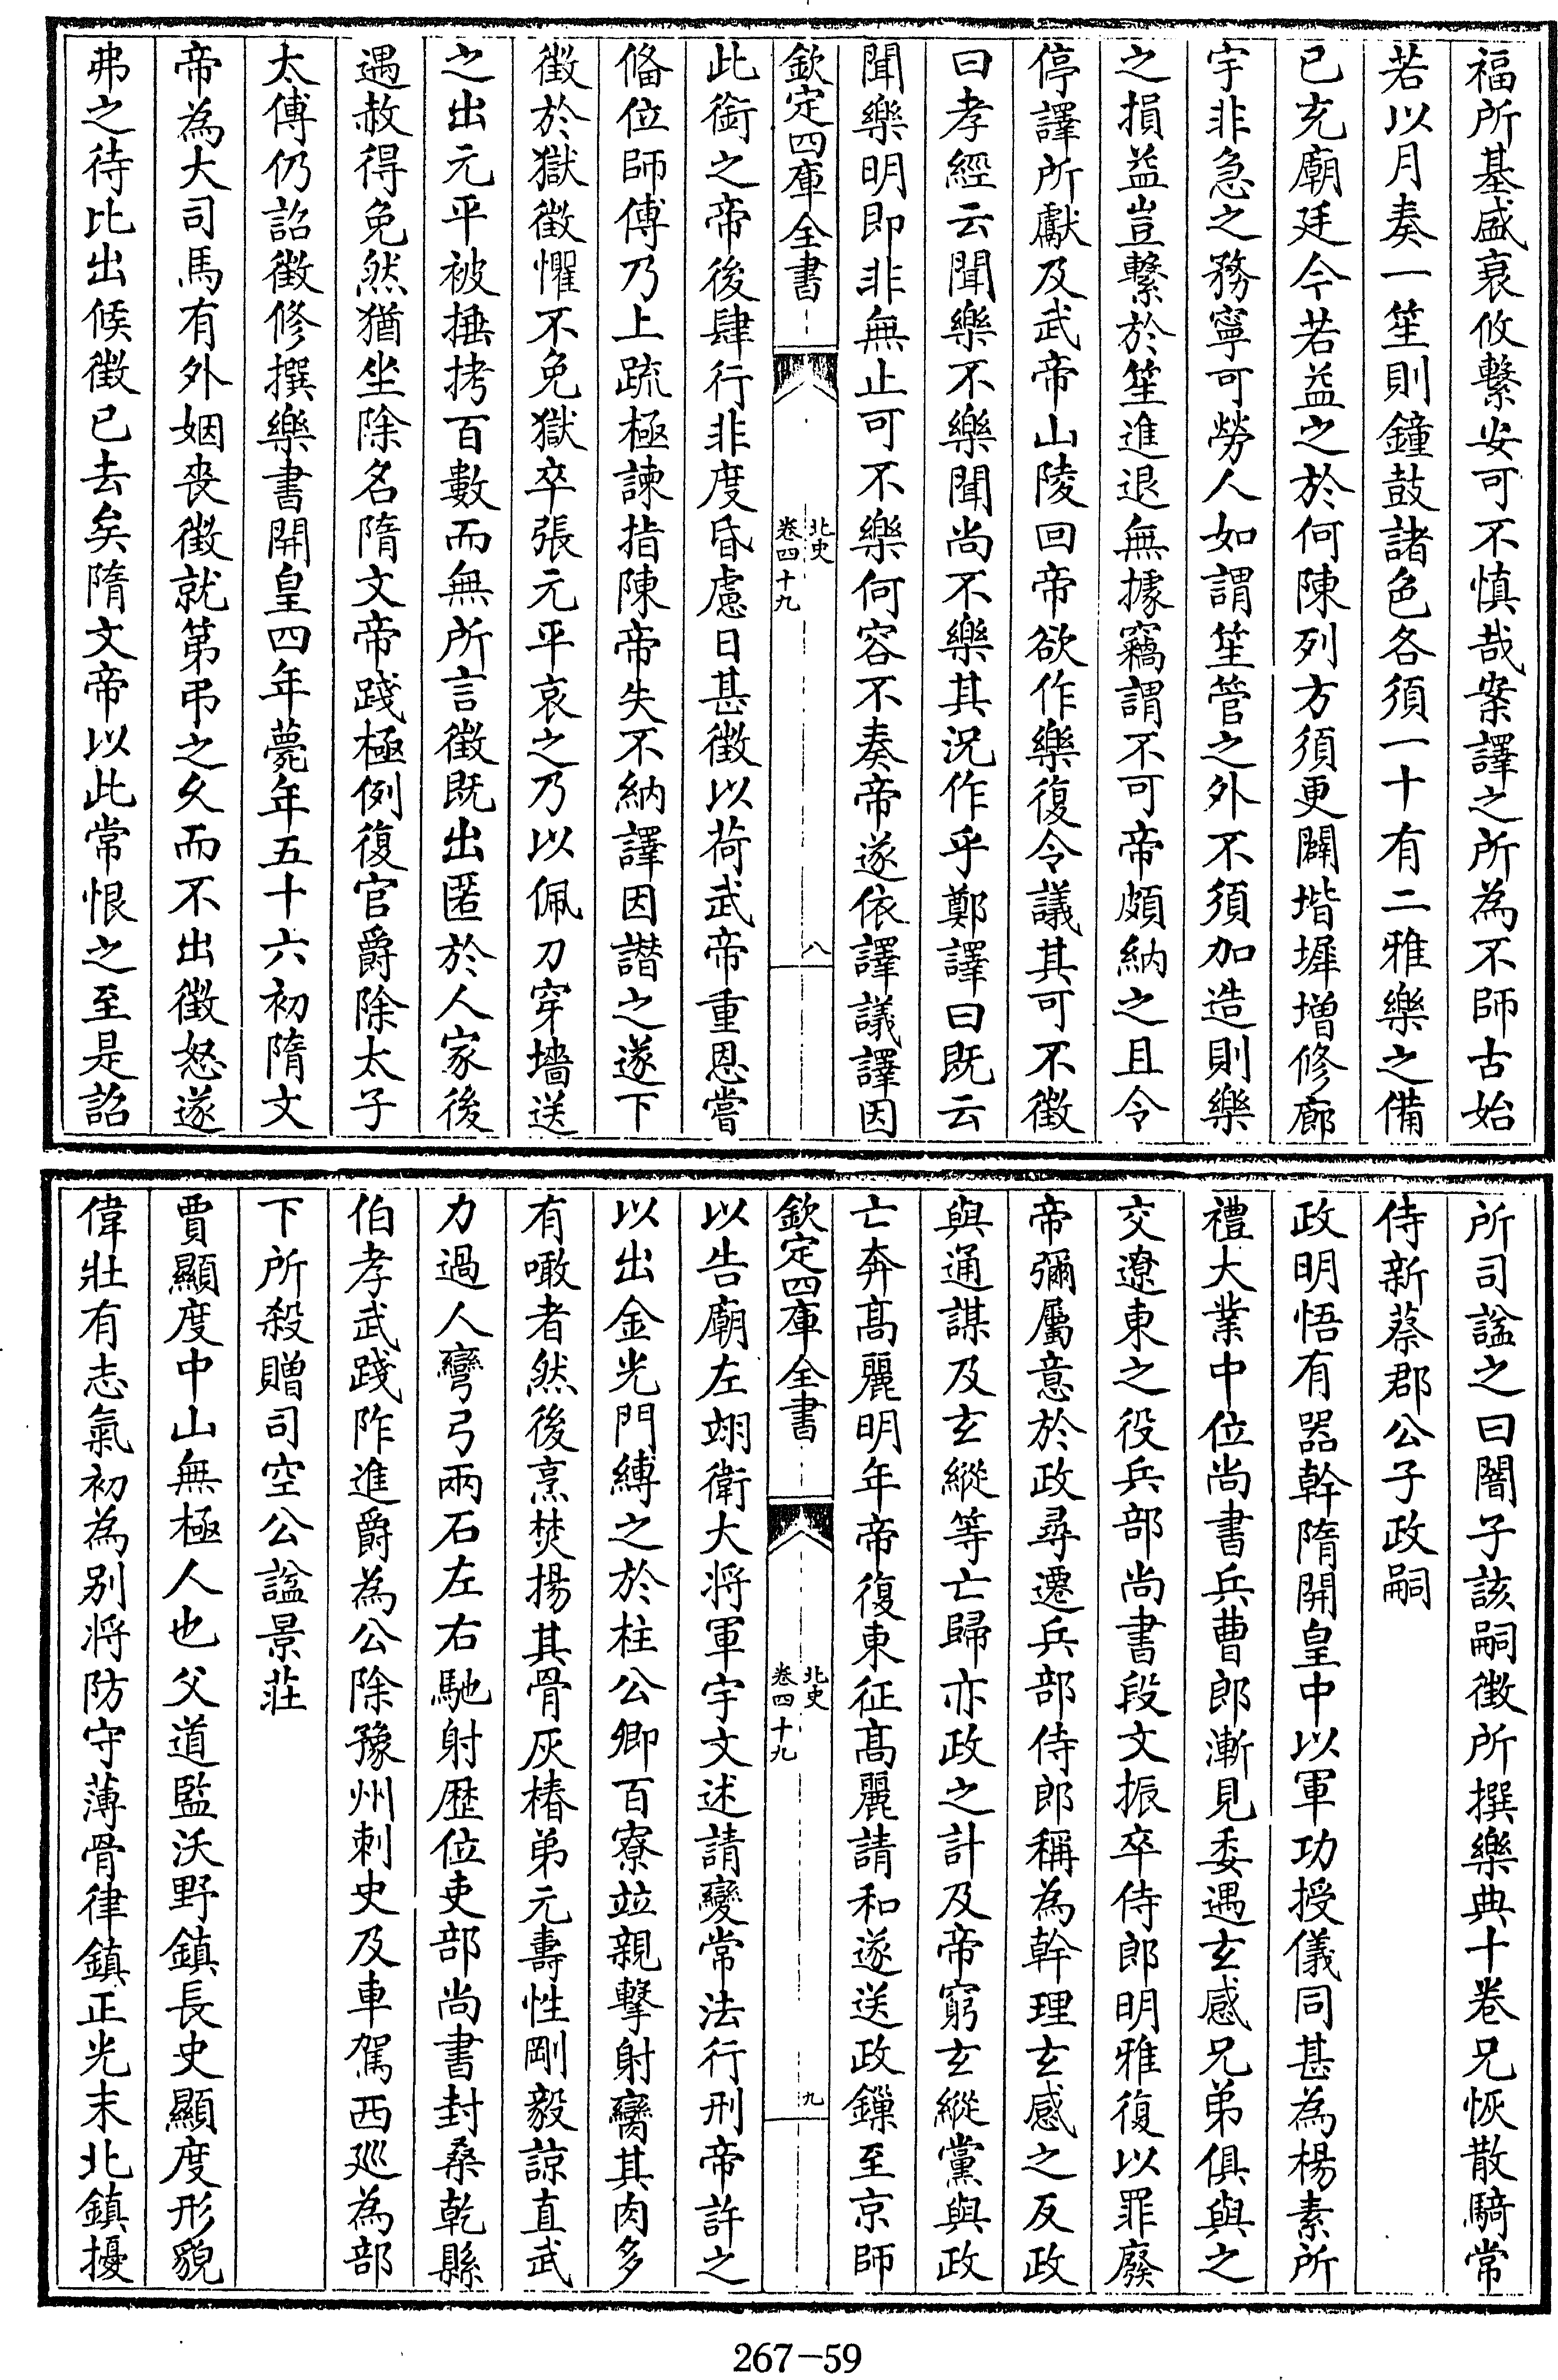 福所基盛衰攸繫安可不慎哉案譯之所為不師古始
若以月奏一笙則鐘鼓諸色各須一十有二雅樂之備
已充廟廷今若益之於何陳列方須更闢堦墀增修廊
宇非急之務寧可勞人如謂笙管之外不須加造則樂
之損益豈繫於笙進退無據竊謂不可帝頗納之且令
停譯所獻及武帝山陵回帝欲作樂復令議其可不徵
曰孝經云聞樂不樂聞尚不樂其況作乎鄭譯曰既云
聞樂明即非無止可不樂何容不奏帝遂依譯議譯因
欽定四庫全書
北史
卷四十九
八
此銜之帝後肆行非度昏慮日甚徵以荷武帝重恩嘗
備位師傅乃上疏極諫指陳帝失不納譯因譖之遂下
徵於獄徵懼不免獄卒張元平哀之乃以佩刀穿墻送
之出元平被捶拷百數而無所言徵既出匿於人家後
遇赦得免然猶坐除名隋文帝踐極例復官爵除太子
太傅仍詔徵修撰樂書開皇四年薨年五十六初隋文
帝為大司馬有外姻喪徵就第弔之久而不出徵怒遂
弗之待比出候徵已去矣隋文帝以此常恨之至是詔
所司諡之曰闇子該嗣徵所撰樂典十卷兄恢散騎常
侍新蔡郡公子政嗣
政明悟有器幹隋開皇中以軍功授儀同甚為楊素所
禮大業中位尚書兵曹郎漸見委遇玄感兄弟俱與之
交遼東之役兵部尚書段文振卒侍郎明雅復以罪廢
帝彌屬意於政尋遷兵部侍郎稱為幹理玄感之反政
與通謀及玄縱等亡歸亦政之計及帝窮玄縱黨與政
亡奔高麗明年帝復東征高麗請和遂送政鏁至京師
欽定四庫全書
北史
卷四十九
九
以告廟左翊衛大將軍宇文述請變常法行刑帝許之
以出金光門縛之於柱公卿百寮竝親擊射臠其肉多
有噉者然後烹焚揚其骨灰椿弟元壽性剛毅諒直武
力過人彎弓兩石左右馳射歷位吏部尚書封桑乾縣
伯孝武踐阼進爵為公除豫州刺史及車駕西巡為部
下所殺贈司空公諡景莊
賈顯度中山無極人也父道監沃野鎮長史顯度形貌
偉壯有志氣初為別將防守薄骨律鎮正光末北鎮擾
267-59